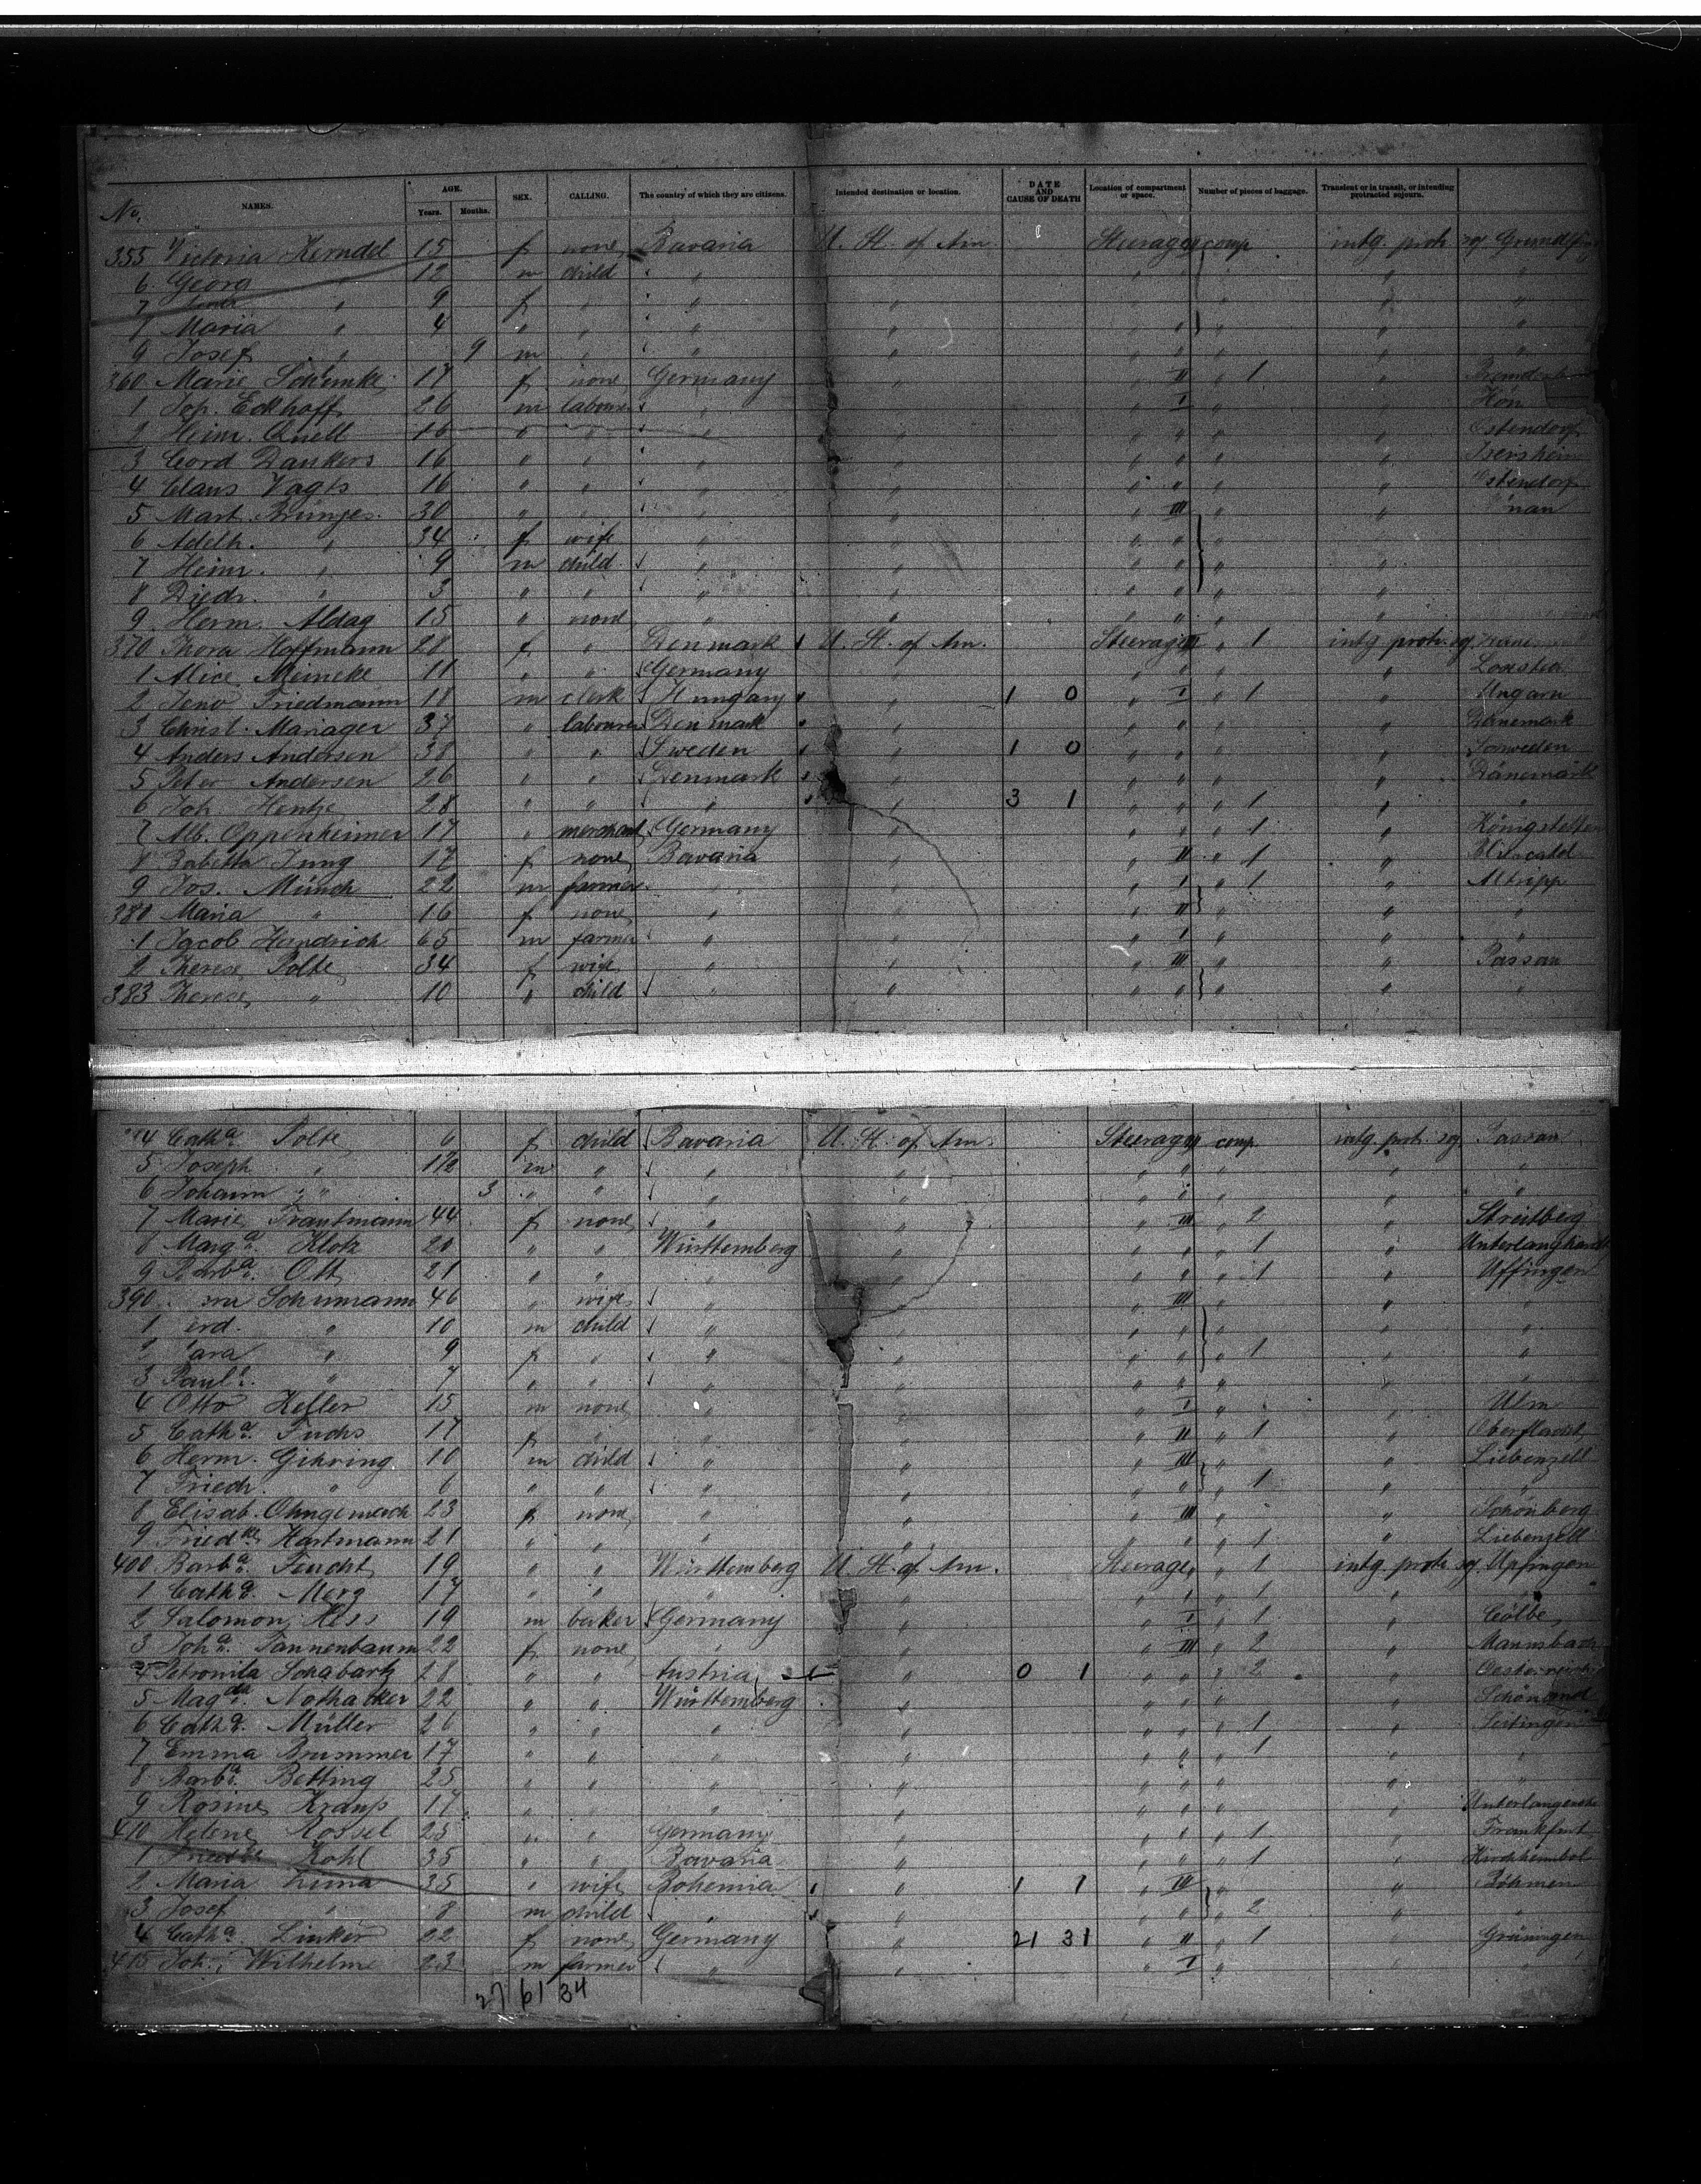 No. NAMES. AGE. Years. Months. SEX. CALLING. The country of which they are citizens. Intended destination or location. DATE AND CAUSE OF DEATH Location of compartment or space. Number of pieces of baggage. Transient or in transit, or intending protracted sojourn.
355 Victoria Kerndel 15 f none Bavaria U. St. of Am. Steerage comp intg. protr. soj.
6 Georg " 12 m child " " "
7 " 9 f " " " "
Maria " 4 " " " " "
9 Josef " 9 m " " " "
360 Marie 17 f none Germany " " II " 1 "
1 Joh. Eckhoff 26 m labourer " " " I " "
2 Heinr. Quell 16 " " " " " " " " Ostendorf
3 Cord Dankers 16 " " " " " " " " Iversheim
4 Claus Vagts 16 " " " " " " " " Ostendorf
5 Mart. Brünjes 30 " " " " " III " "
6 Adelh. " 34 f wife " " " " "
7 Heinr. " 9 m child " " " " " "
8 Diedr. " 3 " " " " " " " "
9 Herm. Aldag 15 " none " " " " " "
370 Thora Hoffmann 28 f " Denmark U. St. of Am. Steerage " 1 intg. protr. soj.
1 Alice Meineke 11 " " Germany " " " " "
2 Jenö Friedmann 18 m clerk Hungary " 1 0 " I " 1 " Ungarn
3 Christ. Mariager 37 " labourer Denmark " " " " " Dänemark
4 Anders Andersen 38 " " Sweden " 1 0 " " " " Schweden
5 Peter Andersen 26 " " Denmark " " " " " Dänemark
6 Joh. Hentze 28 " " " " 3 1 " " " 1 " "
7 Alb. Oppenheimer 17 " merchant Germany " " " " 1 "
8 Babetta Jung 17 f none Bavaria " " II " 1 "
9 Jos. Münch 22 m farmer " " " I " 1 " Altripp
380 Maria " 16 f none " " " II " " "
1 Jacob Hendrich 65 m farmer " " " I " " "
2 Therese Polte 34 f wife " " " III " " Passau
383 Therese " 10 " child " " " " " " "
4 Cath.a Polte 6 f child Bavaria U. St. of Am. Steerage comp. intg. protr. soj. Passau
5 Joseph " 1½ m " " " " " " " "
6 Johann " 3 " " " " " " " " "
7 Marie Trautmann 44 f none " " " III " 2 " Streitberg
8 Marg.a Klotz 20 " " Württemberg " " " " 1 "
9 Barb.a Ott 21 " " " " " " " 1 " Uffingen
390 Schumann 46 " wife " " " III " "
1 " 10 m child " " " " " " "
" 9 f " " " " " " 1 " "
3 Paul.e " 7 " " " " " " " " "
4 Otto Keller 15 m none " " " I " " Ulm
5 Cath.a Fuchs 17 f " " " " II " 1 " Oberflacht
6 Herm. Gihring 10 m child " " " III " " Liebenzell
7 Friedr. " 6 " " " " " " " 1 " "
8 Elisab. Ohngemach 23 f none " " " III " " Schönberg
9 Fried.ke Hartmann 21 " " " " " " " 1 " Liebenzell
400 Barb.a Feucht 19 " " Württemberg U. St. of Am. Steerage " 1 intg. protr. soj. Upfingen
1 Cath.a Merz 17 " " " " " " " 1 " "
2 Salomon Hess 19 m baker Germany " " I " 1 " Cölbe
3 Joh.a Tannenbaum 22 f none " " " III " 2 " Mannsbach
4 Petronila Schabartz 28 " " Austria " 0 1 " " " 2 "
5 Mag.da Nothacker 22 " " Württemberg " " " " "
6 Cath.a Müller 26 " " " " " " " 1 "
7 Emma Brummer 17 " " " " " " " 1 " "
8 Barb.a Betting 25 " " " " " " " "
9 Rosine Krauß 17 " " " " " " " "
410 Helene Rossel 25 " " Germany " " " " 1 " Frankfurt
1 Kohl 35 " " Bavaria " " " " 1 "
2 Maria 35 " wife Bohemia " 1 1 " III " " Böhmen
3 Josef " 8 m child " " " " " 2 " "
4 Cath.a Linker 22 f none Germany " 21 31 " II " 1 " Grüningen
415 Joh. Wilhelm 23 m farmer " " " I " "
27 61 34